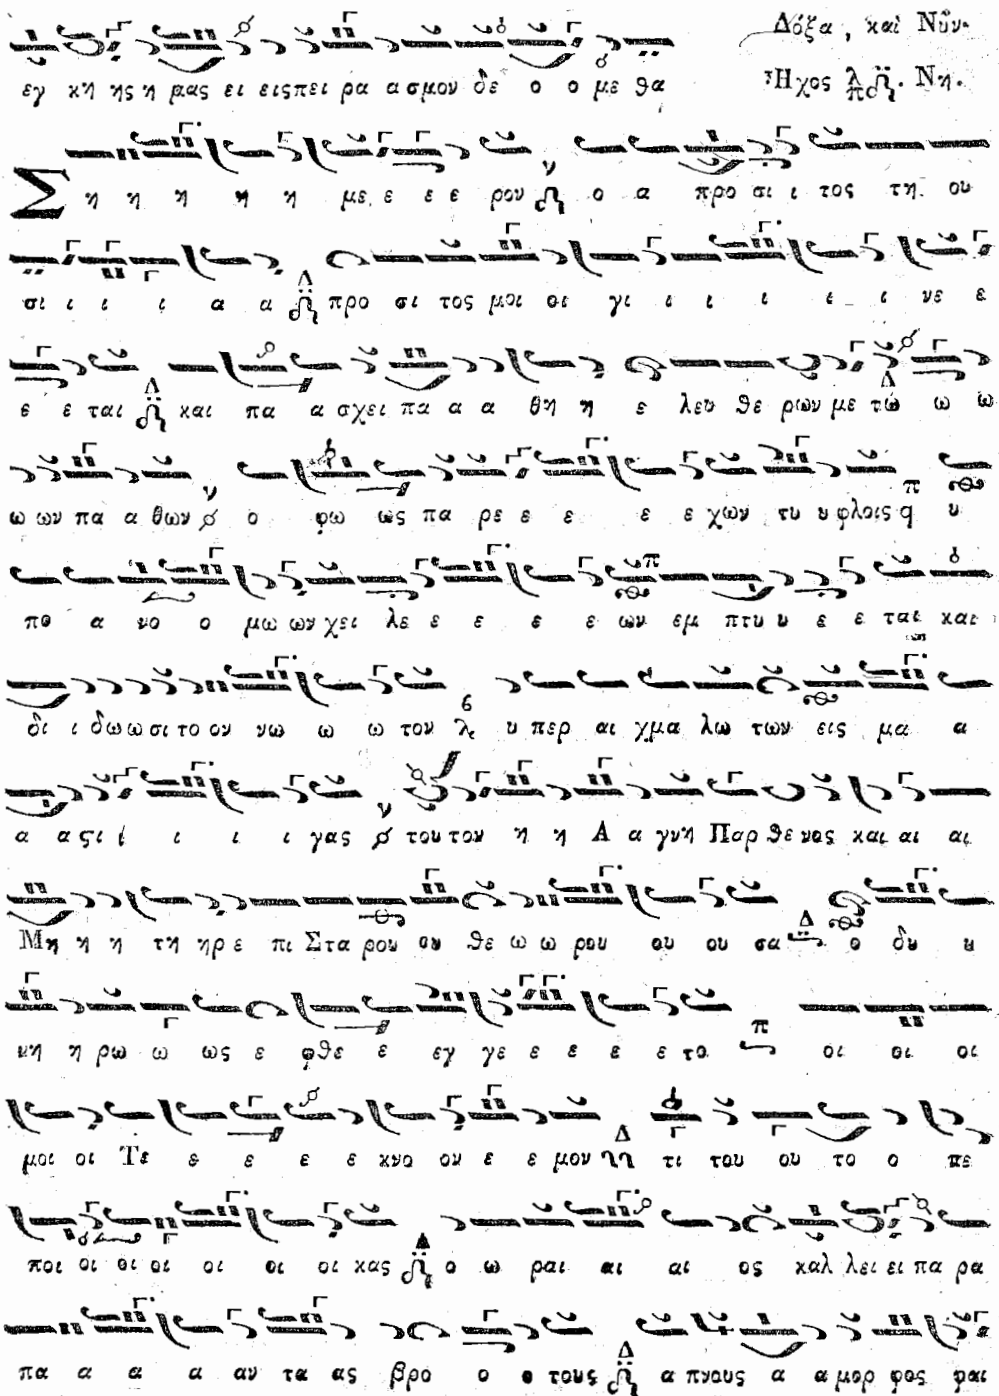 Δόξα, καὶ Νῦν.
εγ κη ης η μας ει εις πει ρα α σμον δε ο ο με θα
Ἦχος λ π δ. Νη.
Σ η η η η η με ε ε ε ρου ο α προ σι ι τος τη ου
σι ι ι ι α α Δ προ σι τος μοι οι γι ι ι ι ι ι νε ε
ε ε ται Δ και πα α σχει πα α α θη η ε λευ θε ρων με Δ τω ω ω
ω ων πα α θων ν ο φω ως πα ρε ε ε ε ε χων τυ υ φλοις π q υ
πο α νο ο μω ων χει λε ε ε ε ε ων π εμ πτυ υ ε ε ται και
δι ι δω ω σι το ον νω ω ω τον λ υ περ αι χμα λω των εις μα α
α α ςι ι ι ι ι γας ν του τον η η Α α γνη Παρ θε νος και αι αι
Μη η η τη ηρ ε πι Στα ρου ου θε ω ω ρου ου ου σα Δ ο δυ υ
νη η ρω ω ως ε φθε ε εγ γε ε ε ε ε το π οι οι οι
μοι οι Τε ε ε ε ε κνο ον ε ε μον Δ τι του ου το ο πε
ποι οι οι οι οι οι οι κας Δ ο ω ραι αι αι ος καλ λει ει πα ρα
πα α α α αν τα ας βρο ο ο τους Δ α πνους α α μορ φος φαι